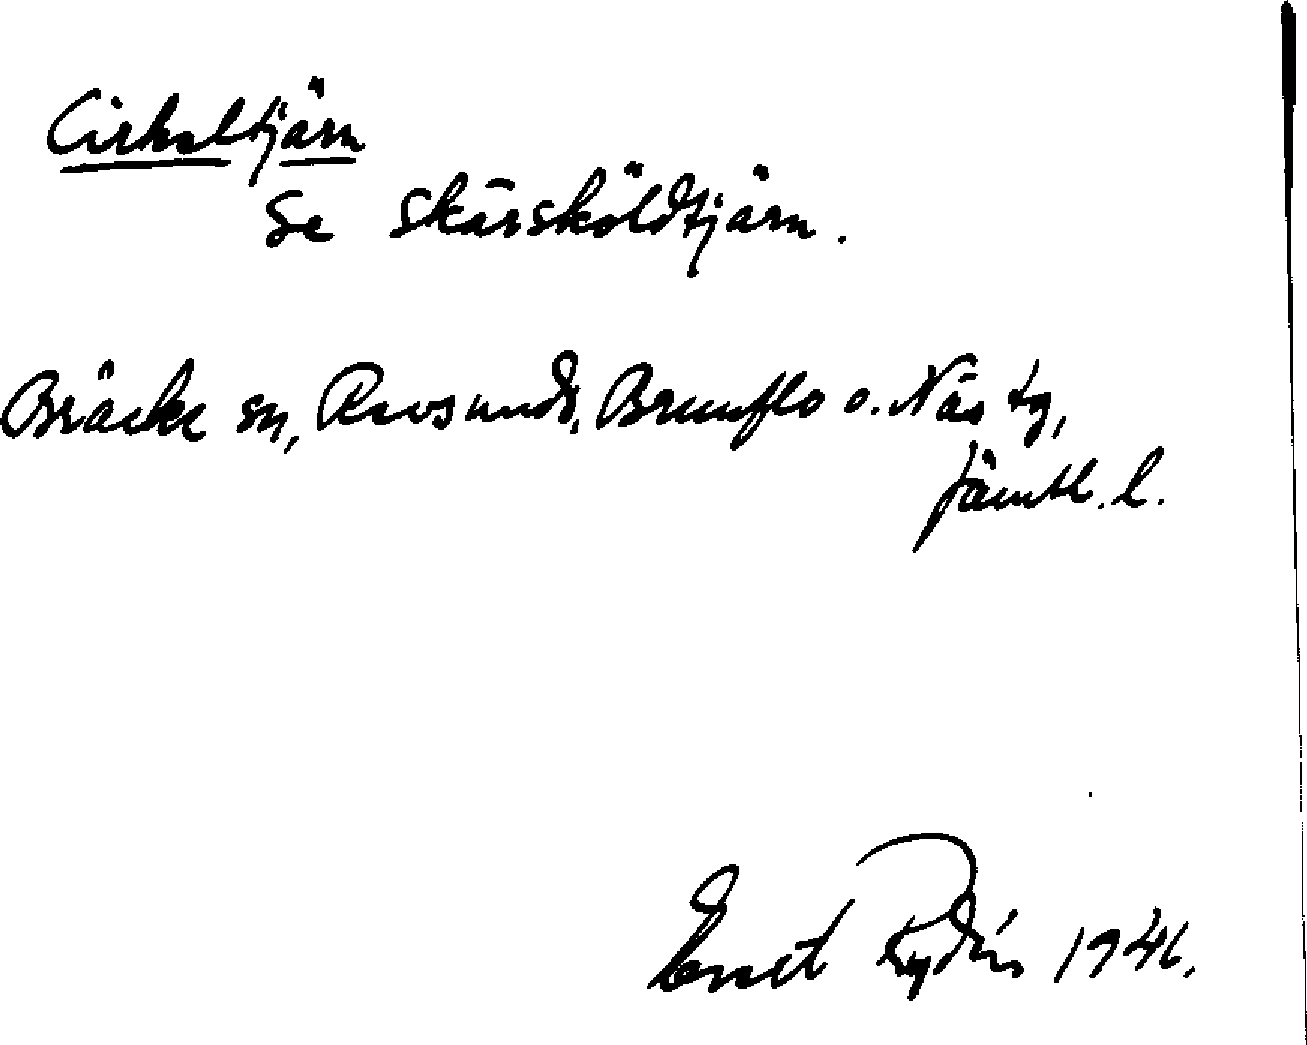 Cirkeltjärn
Se Skärsköldtjärn.
Bräcke sn, Revsunds, Brunflo o. Näs tg,
Jämtl. l.
Ernst Rydén 1941.